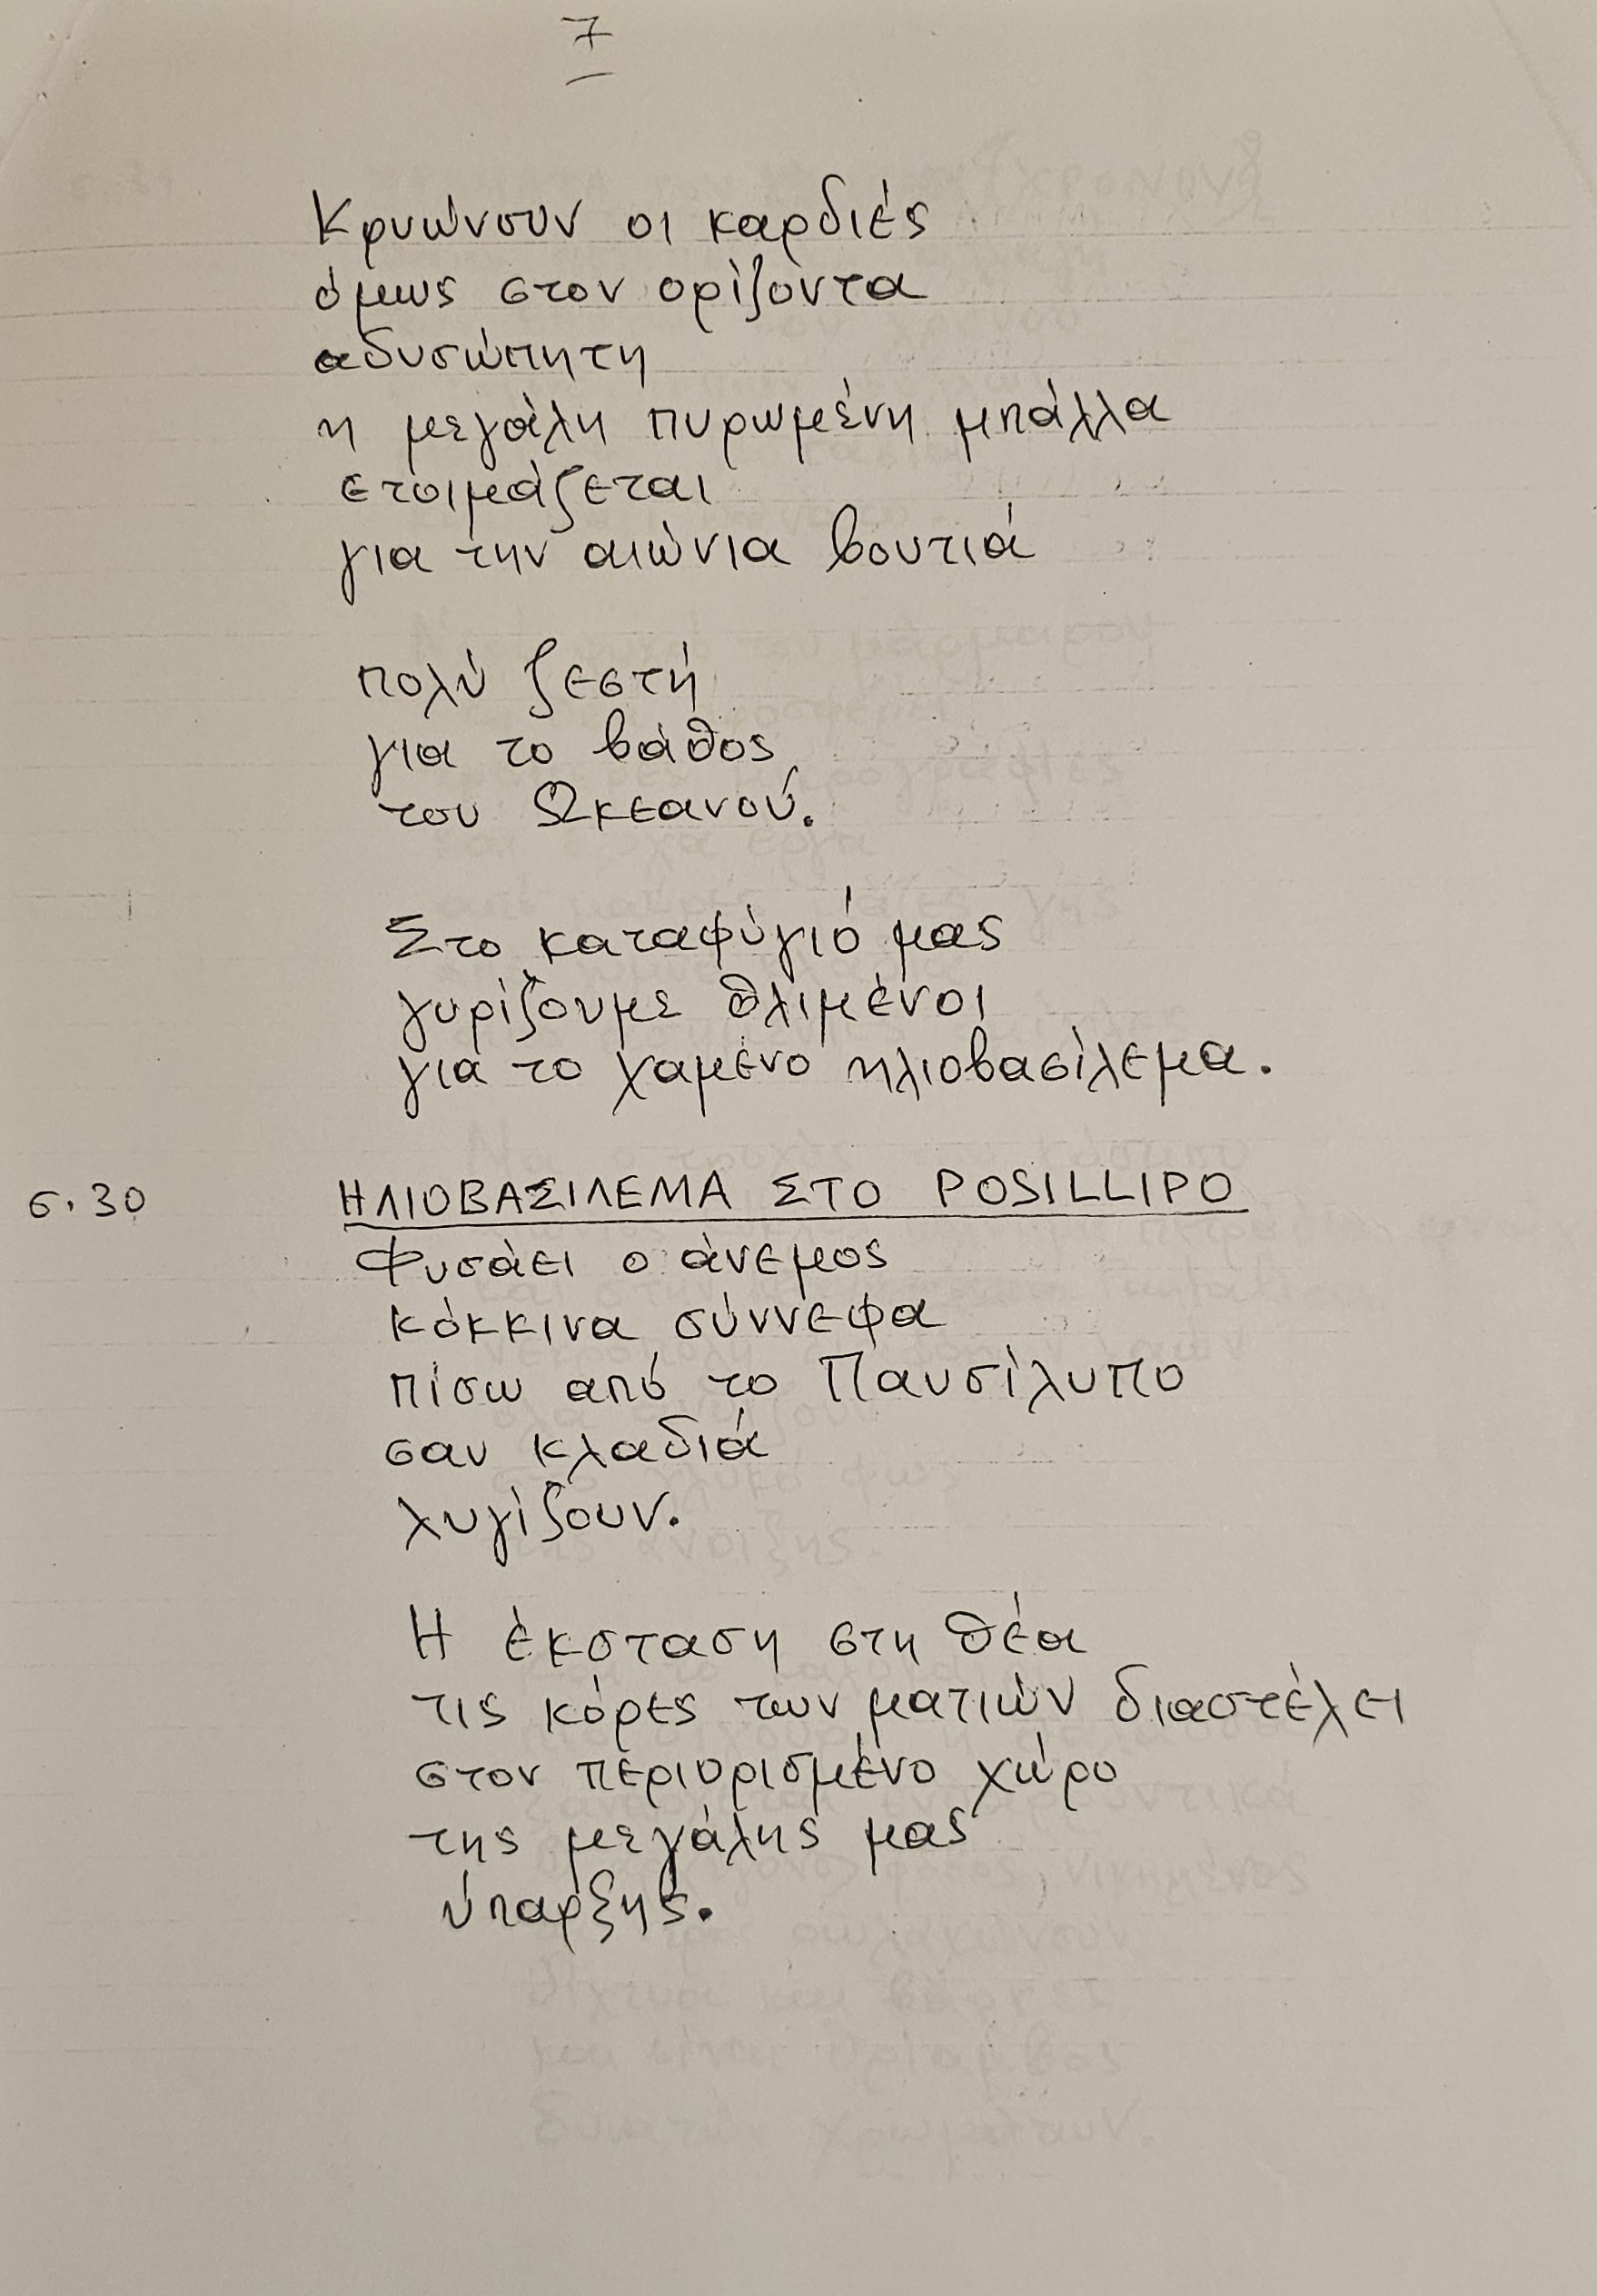 7
Κρυώνουν οι καρδιές
όμως στον ορίζοντα
αδυσώπητη
η μεγάλη πυρωμένη μπάλλα
ετοιμάζεται
για την αιώνια βουτιά
πολύ ζεστή
για το βάθος
του Ωκεανού.
Στο καταφύγιό μας
γυρίζουμε θλιμένοι
για το χαμένο ηλιοβασίλεμα.
σ. 30 ΗΛΙΟΒΑΣΙΛΕΜΑ ΣΤΟ POSILLIPO
Φυσάει ο άνεμος
κόκκινα σύννεφα
πίσω από το Παυσίλυπο
σαν κλαδιά
λυγίζουν.
Η έκσταση στη θέα
τις κόρες των ματιών διαστέλει
στον περιορισμένο χώρο
της μεγάλης μας
ύπαρξης.